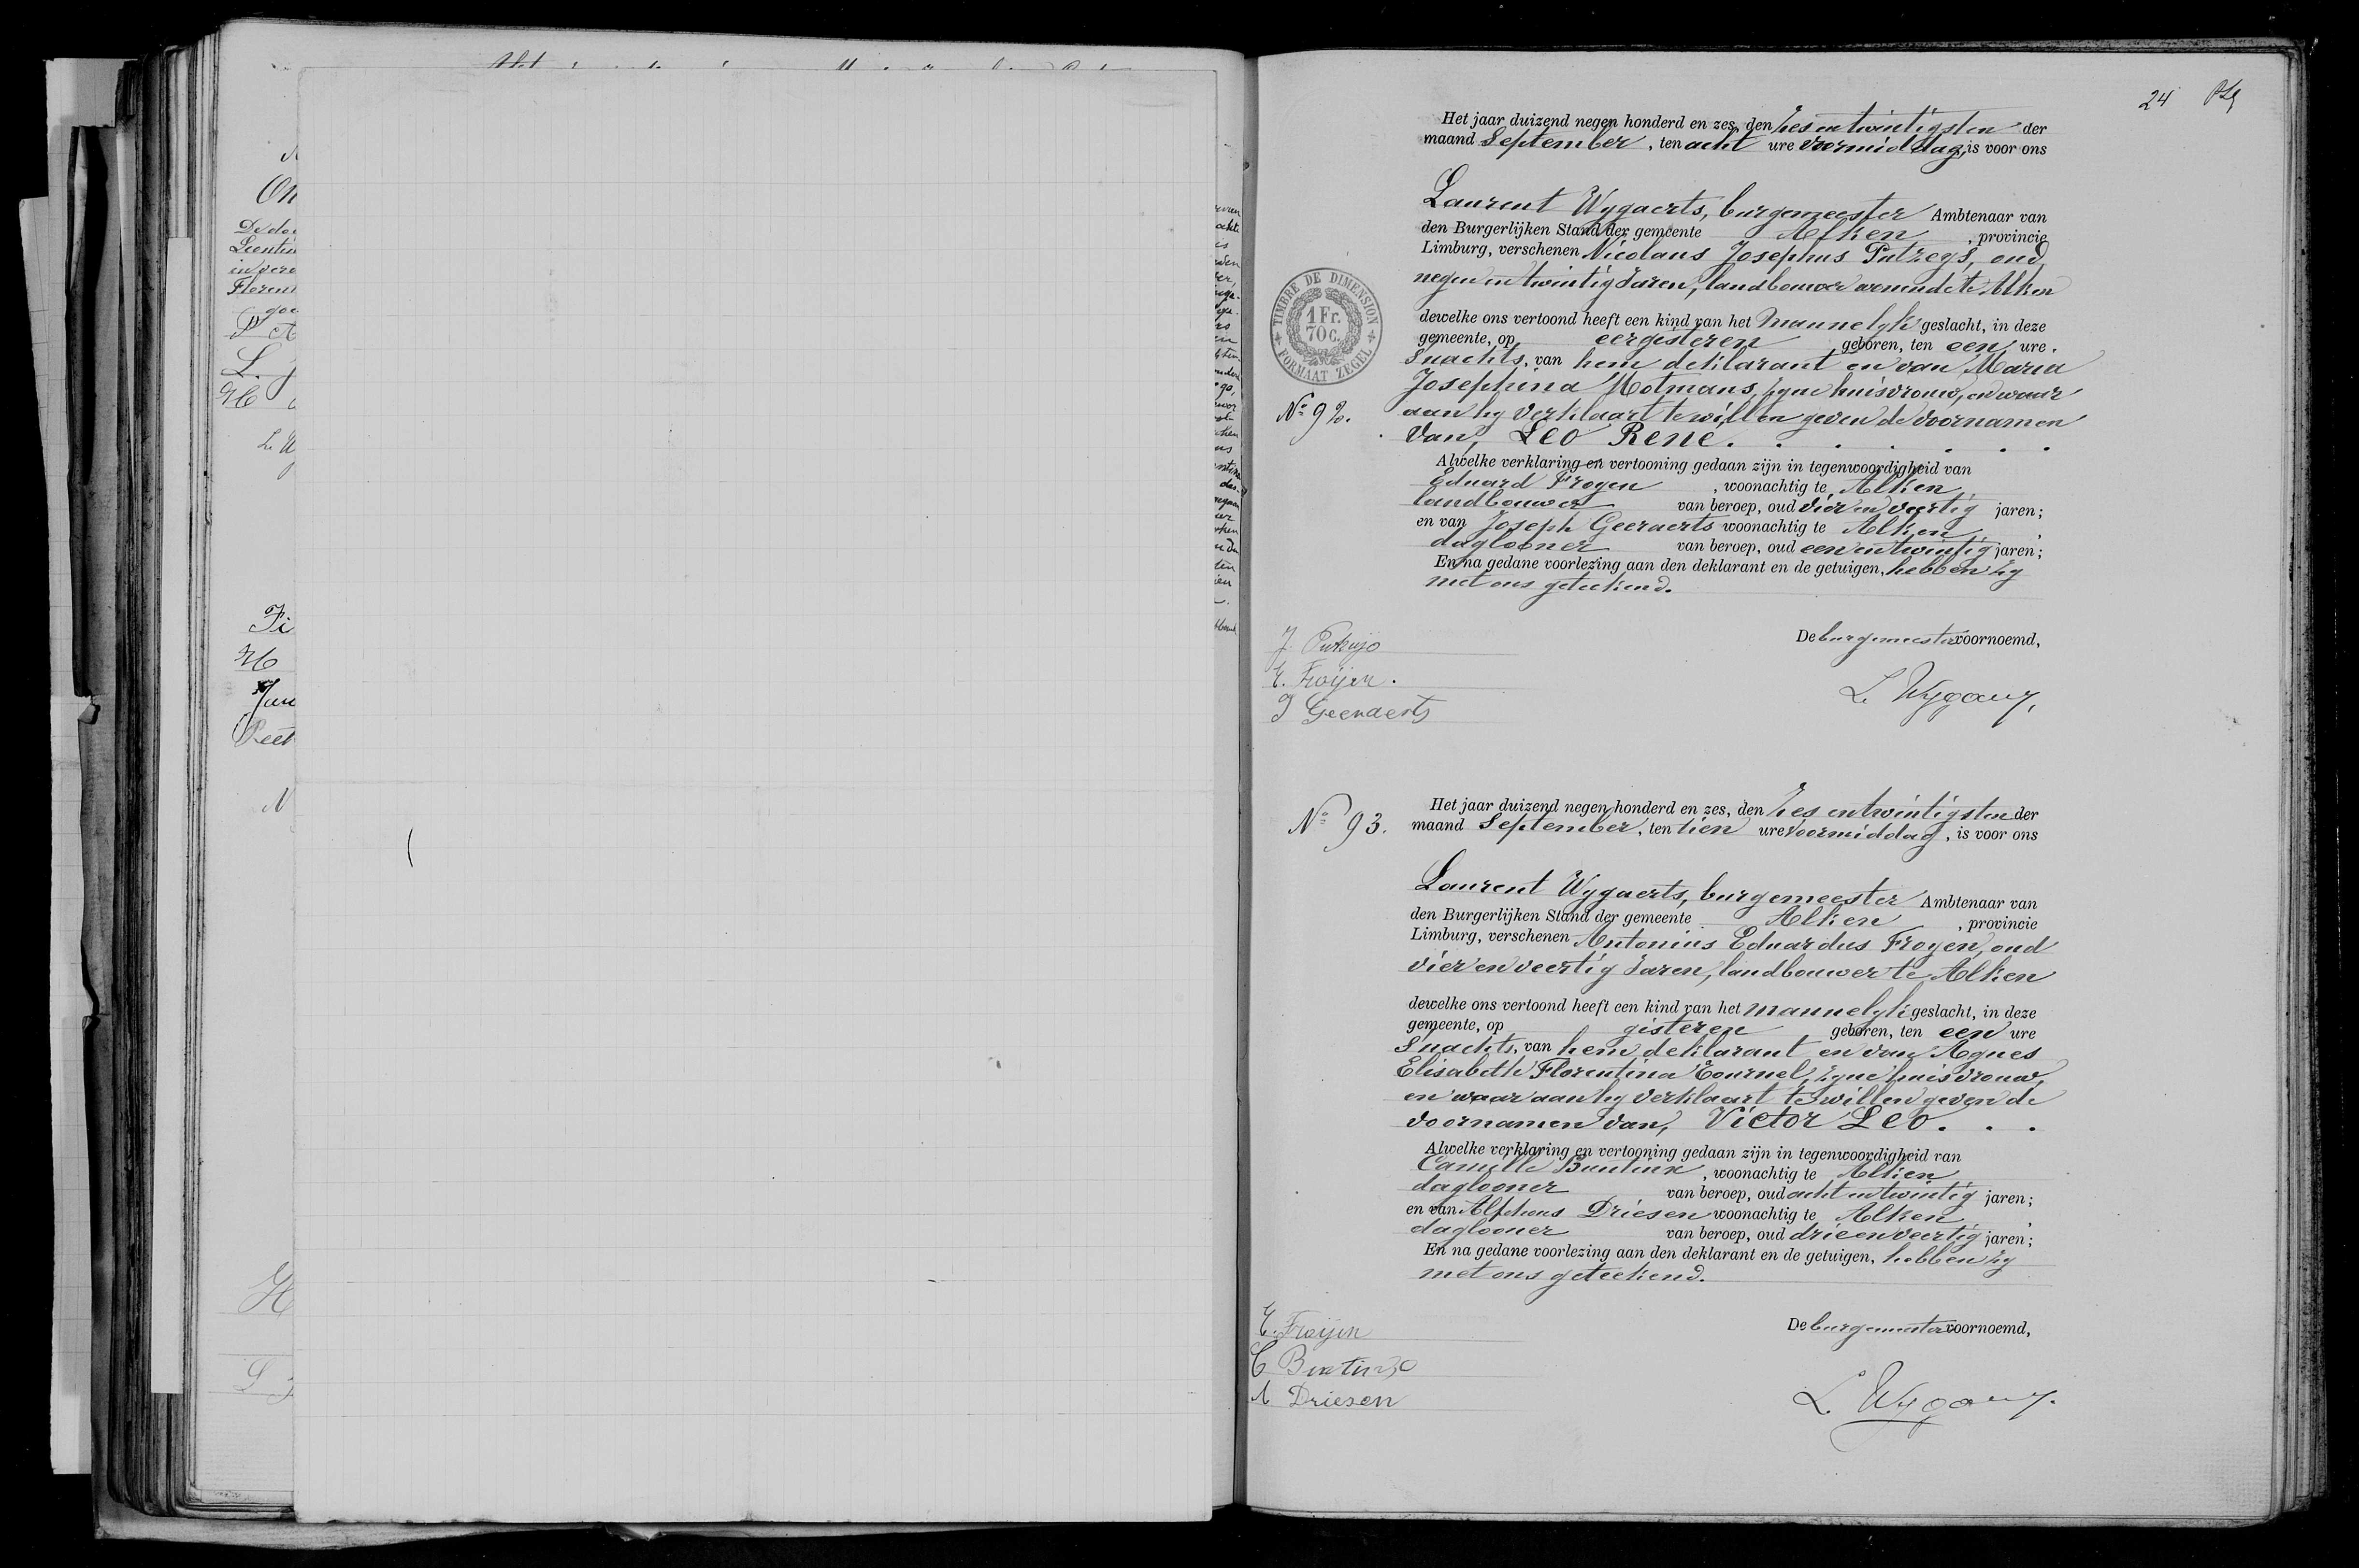 24
Het jaar duizend negen honderd en zes, den zes en twintigsten der
maand September, ten acht ure voormiddag, is voor ons
Laurent Wygaerts, burgemeester Ambtenaar van
den Burgerlijken Stand der gemeente Alken, provincie
Limburg, verschenen Nicolaus Josephus Putzeys, oud
negen en twintig Jaren, landbouwer wonende te Alken
dewelke ons vertoond heeft een kind van het mannelyk geslacht, in deze
gemeente, op eergisteren geboren, ten een ure.
Snachts, van hem deklarant en van Maria
Josephina Motmans, zyne huisvrouw, en waar
aan hy verklaart te willen geven de voornamen
van, Leo Rene. . . . . . .
TIMBRE DE DIMENSION
1 Fr.
70 C.
FORMAAT ZEGEL
No 92.
Alwelke verklaring en vertooning gedaan zijn in tegenwoordigheid van
Eduard Froyen, woonachtig te Alken,
landbouwer van beroep, oud vier en veertig jaren;
en van Joseph Geeraerts woonachtig te Alken,
daglooner van beroep, oud een en twintig jaren;
En na gedane voorlezing aan den deklarant en de getuigen, hebben zy
met ons geteekend.
De burgemeester voornoemd,
J. Putzeys
E. Froÿen.
J Geeraerts
L. Wygaerts
No 93.
Het jaar duizend negen honderd en zes, den zes en twintigsten der
maand September, ten tien ure voormiddag, is voor ons
Laurent Wygaerts, burgemeester Ambtenaar van
den Burgerlijken Stand der gemeente Alken, provincie
Limburg, verschenen Antonius Eduardus Froyen, oud
vier en veertig Jaren, landbouwer te Alken
dewelke ons vertoond heeft een kind van het mannelyk geslacht, in deze
gemeente, op gisteren geboren, ten een ure
Snachts, van hem deklarant en van Agnes
Elisabeth Florentina Tournel, zyne huisvrouw,
en waar aan hy verklaart te willen geven de
voornamen van, Victor Leo. . .
Alwelke verklaring en vertooning gedaan zijn in tegenwoordigheid van
Camille Buntinx, woonachtig te Alken
daglooner van beroep, oud acht en twintig jaren;
en van Alphons Driesen woonachtig te Alken,
daglooner van beroep, oud drie en veertig jaren;
En na gedane voorlezing aan den deklarant en de getuigen, hebben zy
met ons geteekend.
De burgemeester voornoemd,
E. Froÿen
C Buntinx
A Driesen
L. Wygaerts